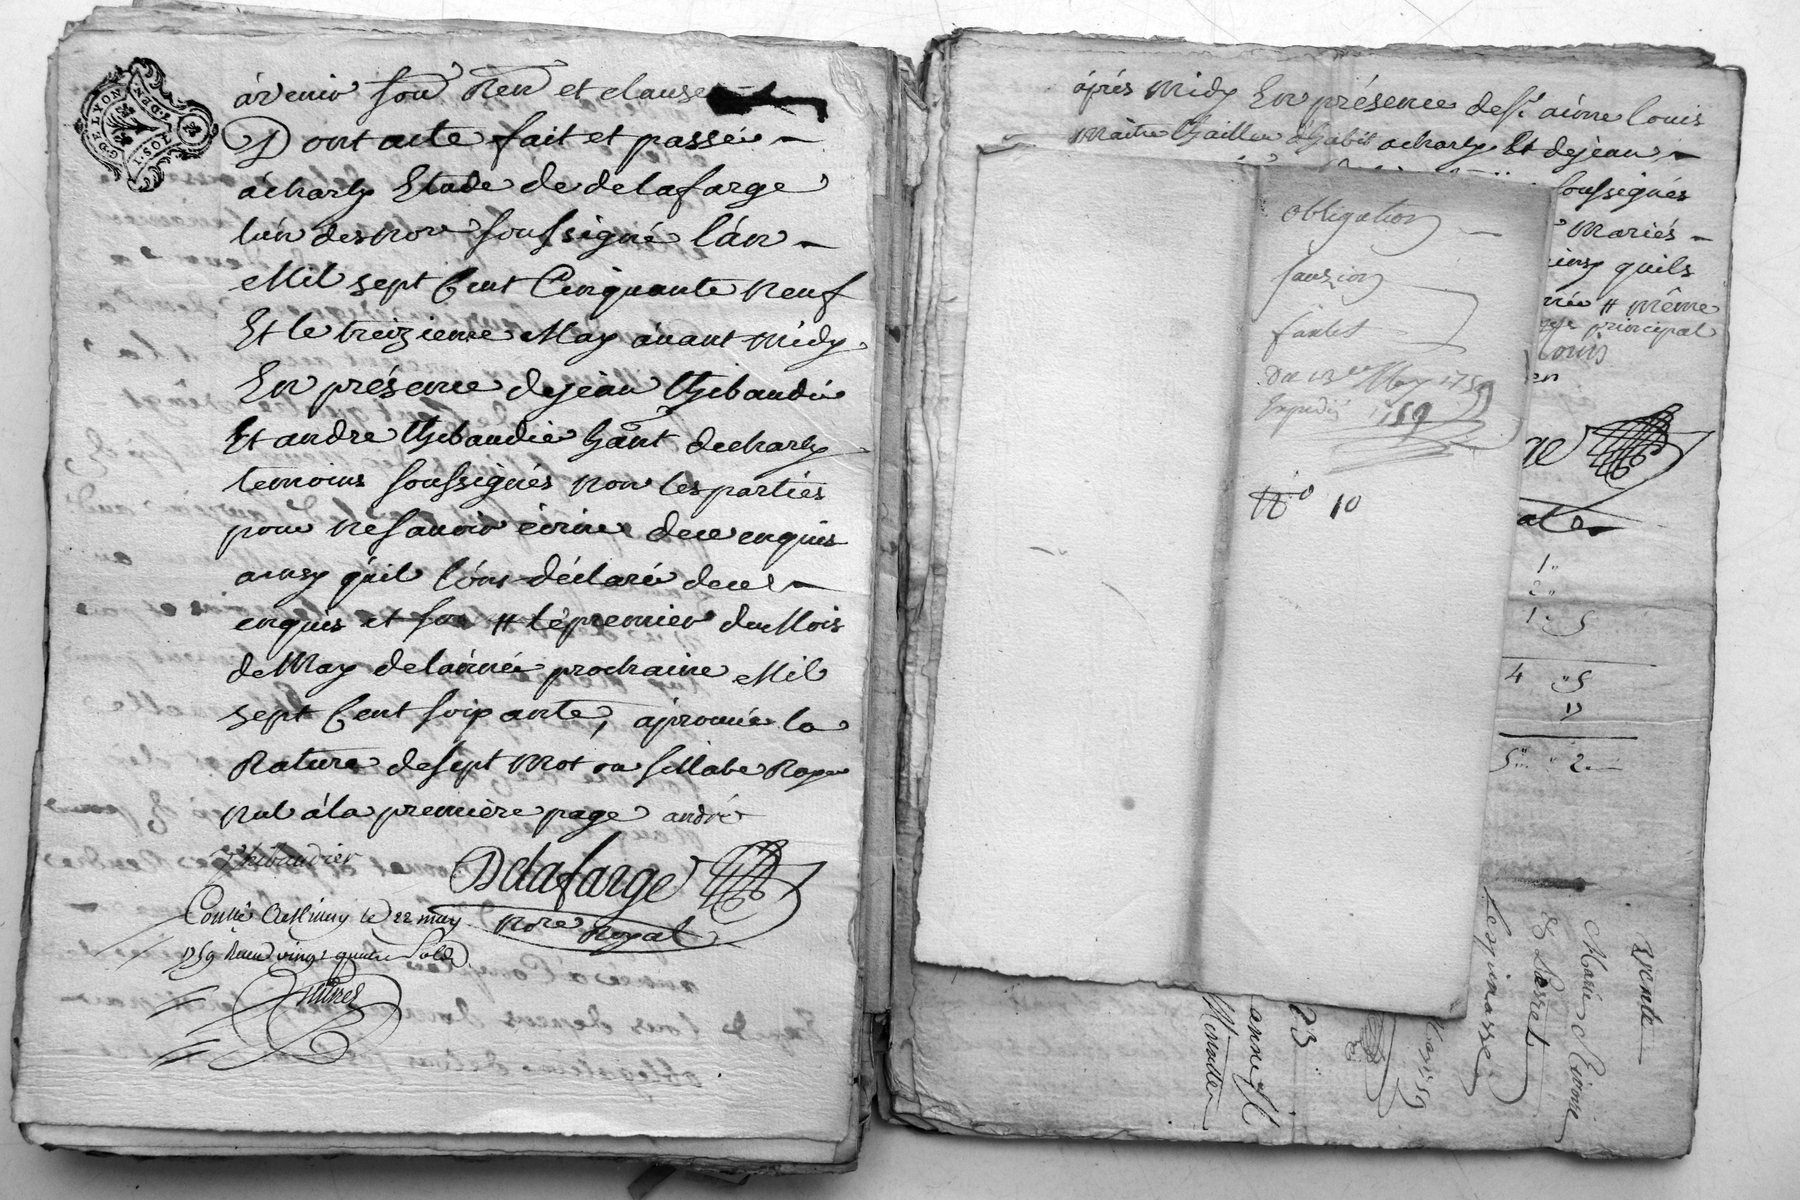 G. DE LYON
1 SOL 4 DEN.
àvenir sous Ren et clause
Dont acte fait et passé
à charly Etude de delafarge
lún des nore soussigné lán
Mil sept Cent Cinquante neuf
Et le treizieme May avant midy
En présence de jean thibaudié
Et andre thibaudié hant de charly
temoins soussignés non les parties
pour ne savoir écrire de ce enquis
ainsy qu'il l'ons déclaré de ce
enquis et # lé premier du Mois
de May de lánnée prochaine Mil
sept Cent soixante, aprouvée la
Rature de sept mot ou sillabe Raye
nul á la première page andré
thibaudier Delafarge
nore Royal
le 22 may
1759 Reçu vingt quatre sols
àprés Midy En présence de sr. aimé louis
Maitre tailleur habit a charly Et de jean
soussignés
Mariés
quils
# même
principal
louis
en
ge
al
1"
2"
1 " 5
4 " 5
17
5 " 2
obligation
fauxion
faulet
Du 13e May 1759
Expedié 1759
No 10
vente
Marie
& Passet
Lespinasse
May 59
23
anne
Minutte